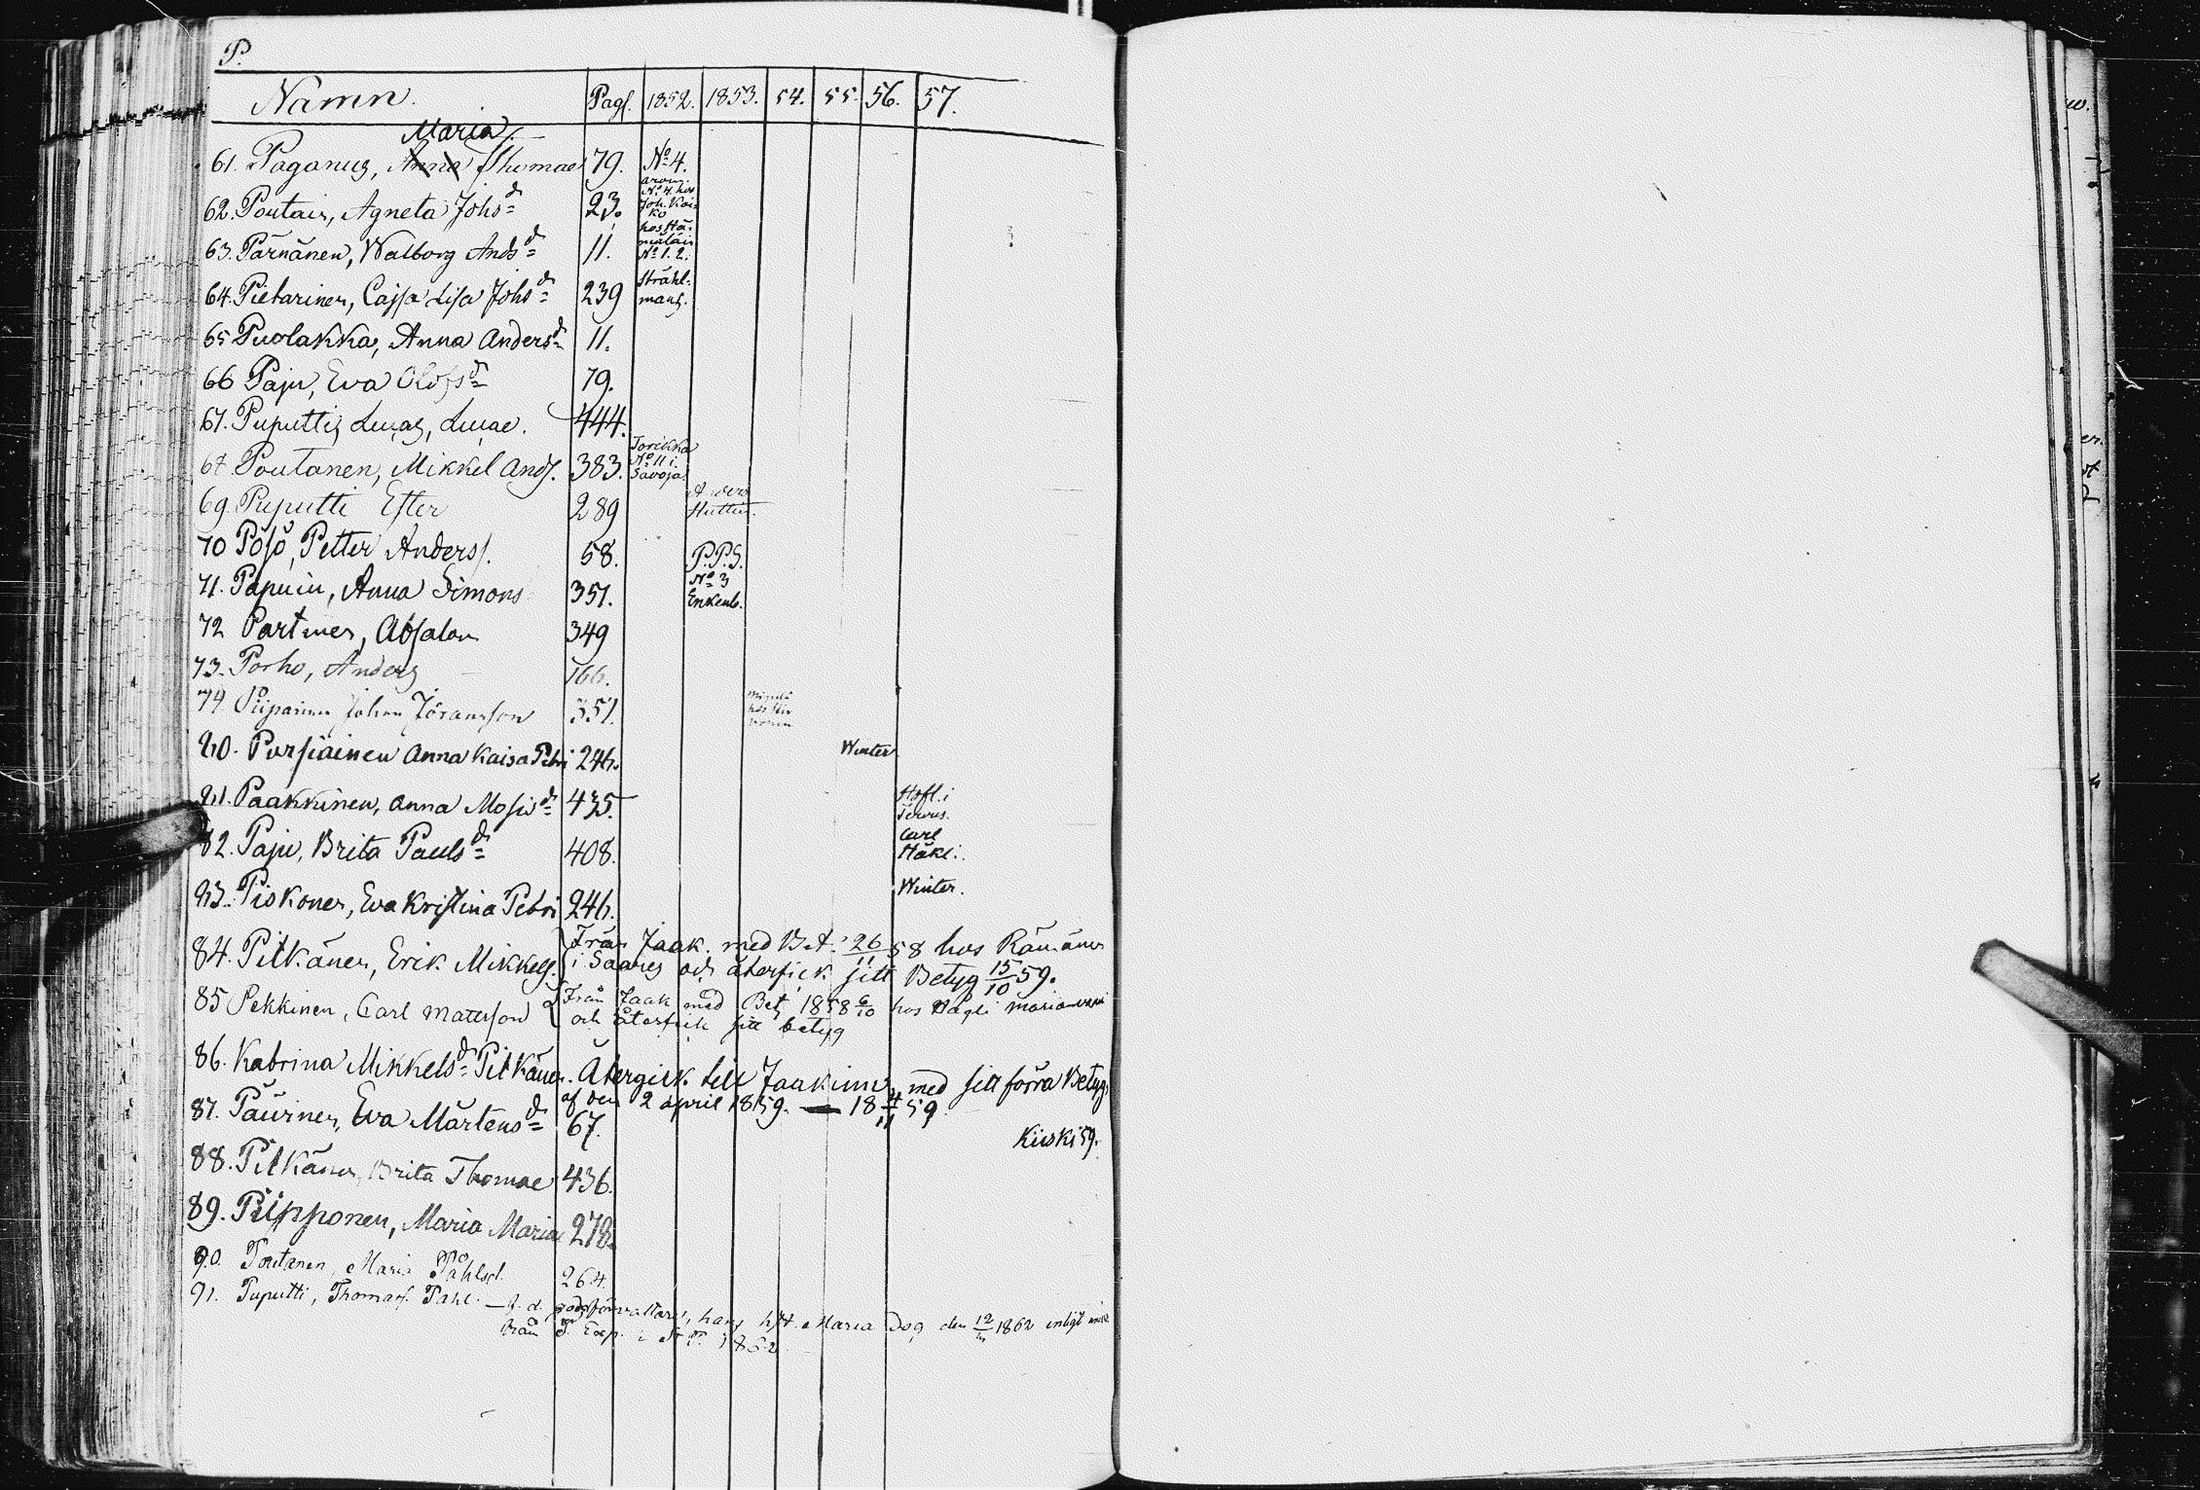 P.
Namn. Pag. 1852. 1853. 54. 55. 56. 57.
Maria
61. Paganus, Anna Thomae 79. No 4.
62. Poutain, Agneta Johsd 23. No 4. hos Joh. Kaiko
63. Pärnänen, Walborg Andsd 11. No 1. 2.
64. Pietarinen, Cajsa Lisa Johsd 239 Stråhlmans.
65 Puolakka, Anna Andersd 11.
66 Paju, Eva Olofsd 79.
67. Puputti, Lucas, Lucae. 444.
67 Poutanen, Mikkel Ands. 383. Torikka No 11 i Savoja
69. Puputti Ester 289 Anders Huttu.
70 Pösö, Petter Anders. 58. P.P.S.
71. Papuin, Anna Simons 351. No 3 Enkenb.
72 Partinen, Absalon 349
73. Porho, Anders 166.
74 Piiparinen Johan Jöransson 351.
80. Pursiainen Anna Kaisa Petri 246. Winter
81. Paakkinen, Anna Mosisd 435. Hofl. i Terwus.
82. Paju, Brita Paulsd 408. Carl Häkl:.
83. Piskonen, Eva Kristina Petri 246. Winter.
84. Pitkänen, Erik Mikkels. Från Jaak. med Bet. 26/11 58 hos Rämänen
i Saares och återfick sitt Betyg 15/10 59.
85 Pekkinen, Carl Mattsson Från Jaak med Bet 1858 6/10 hos Hägli
och återfick sitt betyg
86. Katrina Mikkelsd Pitkänen. Återgick till Jaakimv. med sitt förra Betyg
af den 2 april 1859. — 18 4/11 59
87. Päivinen, Eva Mårtensd 67. Kiiski 59.
88. Pitkänen, Brita Thomae 436.
89. Piipponen, Maria Maria 278.
90. Poutanen, Maria Påhlsd. 264.
91. Puputti, Thomas Pahl. — f. d. godsförvaltare, hans hst. Maria Dog den 12/ 1862 enligt
från T. Exp. i St P. 1862